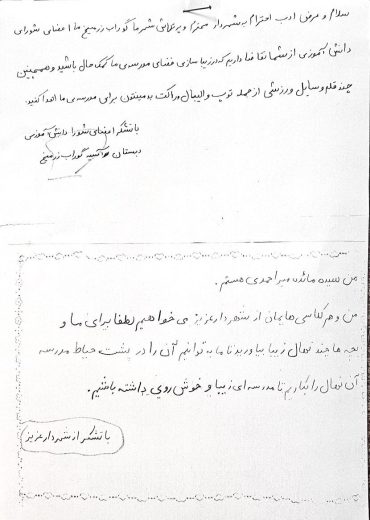 سلام و عرض ادب و احترام به شهردار محترم و پرتلاش شهر ما گوراب زرمیخ ما اعضای شورای
دانش آموزی از شما تقاضا داریم که در زیبا سازی فضای مدرسه ی ما کمک حال باشید و همچنین
چند قلم وسایل ورزشی از جمله توپ والیبال و راکت بدمینتون برای مدرسه ی ما اهدا کنید.
با تشکر اعضای شورا دانش آموزی
دبستان آسیه گوراب زرمیخ
من سیده مائده میراحمدی هستم.
من و هم کلاسی هایمان از شهردار عزیز می خواهیم لطفا برای ما و
بچه ها چند نهال زیبا بیاورید تا ما بتوانیم آن را در پشت حیاط مدرسه
آن نهال را بکاریم تا مدرسه ای زیبا و خوش روی داشته باشیم.
با تشکر از شهردار عزیز